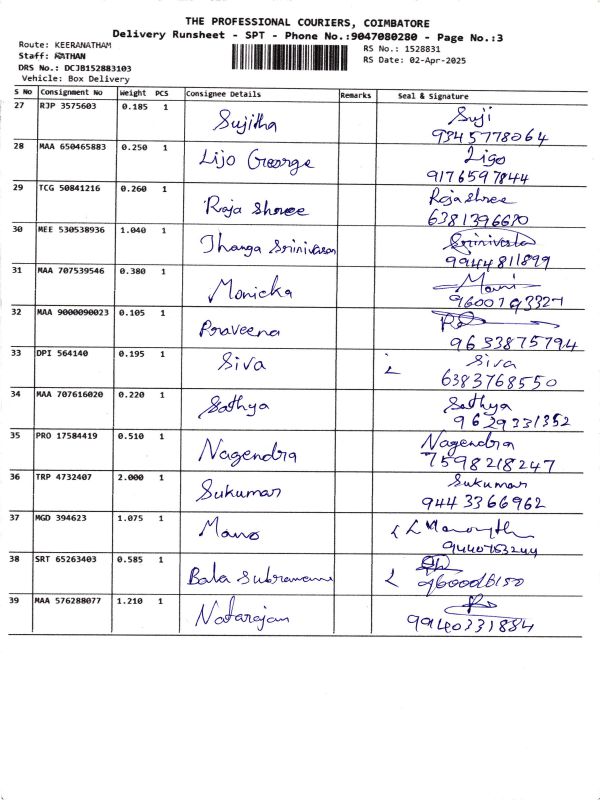 THE PROFESSIONAL COURIERS, COIMBATORE
Delivery Runsheet - SPT - Phone No.:9047080280 - Page No.:3
Route: KEERANATHAM
RS No.: 1528831
Staff: RATHAN
RS Date: 02-Apr-2025
DRS No.: DCJB152883103
Vehicle: Box Delivery
S No Consignment No Weight PCS Consignee Details Remarks Seal & Signature
27 RJP 3575603 0.185 1 Sujitha Suji
9345778064
28 MAA 650465883 0.250 1 Lijo George Ligo
9176597844
29 TCG 50841216 0.260 1 Raja Shree Rajashree
6381396670
30 MEE 530538936 1.040 1 Thanga Srinivasan
9944811899
31 MAA 707539546 0.380 1 Monicka Moni
9600793327
32 MAA 9000090023 0.105 1 Praveena
9633875794
33 DPI 564140 0.195 1 Siva Siva
6383768550
34 MAA 707616020 0.220 1 Sathya Sathya
9629331352
35 PRO 17584419 0.510 1 Nagendra Nagendra
7598218247
36 TRP 4732407 2.000 1 Sukumar Sukumar
9443366962
37 MGD 394623 1.075 1 Mano
38 SRT 65263403 0.585 1 Bala
39 MAA 576288077 1.210 1 Natarajan
9940331884